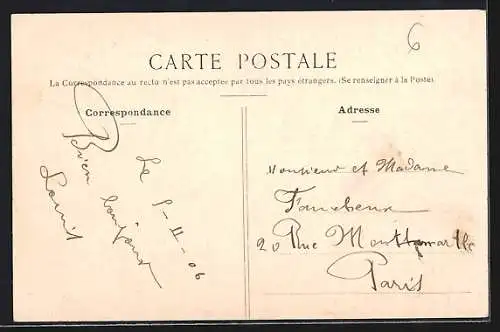 6
CARTE POSTALE
La Correspondance au recto n'est pas acceptée par tous les pays étrangers. (Se renseigner à la Poste)
Correspondance
Le 8-11-06
Bien bonjour
Louis
Adresse
Monsieur et Madame
20 Rue Montmartre
Paris